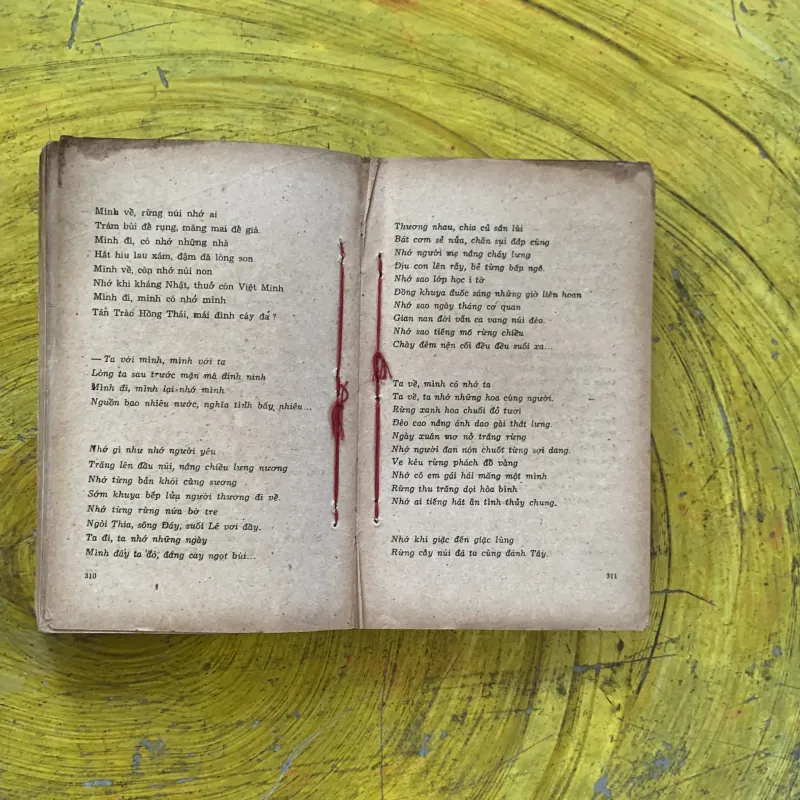 Mình về, rừng núi nhớ ai
Trám bùi để rụng, măng mai để già.
Mình đi, có nhớ những nhà
Hắt hiu lau xám, đậm đà lòng son
Mình về, còn nhớ núi non
Nhớ khi kháng Nhật, thuở còn Việt Minh
Mình đi, mình có nhớ mình
Tân Trào Hồng Thái, mái đình cây đa?
— Ta với mình, mình với ta
Lòng ta sau trước mặn mà đinh ninh
Mình đi, mình lại nhớ mình
Nguồn bao nhiêu nước, nghĩa tình bấy nhiêu...
Nhớ gì như nhớ người yêu
Trăng lên đầu núi, nắng chiều lưng nương
Nhớ từng bản khói cùng sương
Sớm khuya bếp lửa người thương đi về.
Nhớ từng rừng nứa bờ tre
Ngòi Thia, sông Đáy, suối Lê vơi đầy.
Ta đi, ta nhớ những ngày
Mình đây ta đó, đắng cay ngọt bùi...
310
Thương nhau, chia củ sắn lùi
Bát cơm sẻ nửa, chăn sui đắp cùng
Nhớ người mẹ nắng cháy lưng
Địu con lên rẫy, bẻ từng bắp ngô.
Nhớ sao lớp học i tờ
Đồng khuya đuốc sáng những giờ liên hoan
Nhớ sao ngày tháng cơ quan
Gian nan đời vẫn ca vang núi đèo.
Nhớ sao tiếng mõ rừng chiều
Chày đêm nện cối đều đều suối xa...
Ta về, mình có nhớ ta
Ta về, ta nhớ những hoa cùng người.
Rừng xanh hoa chuối đỏ tươi
Đèo cao nắng ánh dao gài thắt lưng.
Ngày xuân mơ nở trắng rừng
Nhớ người đan nón chuốt từng sợi dang.
Ve kêu rừng phách đổ vàng
Nhớ cô em gái hái măng một mình
Rừng thu trăng dọi hòa bình
Nhớ ai tiếng hát ân tình thủy chung.
Nhớ khi giặc đến giặc lùng
Rừng cây núi đá ta cùng đánh Tây.
311